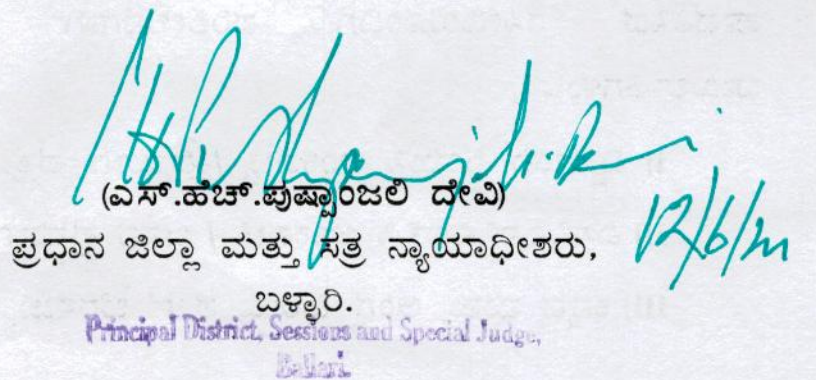 (ಎಸ್.ಹೆಚ್.ಪುಷ್ಪಾಂಜಲಿ ದೇವಿ)
ಪ್ರಧಾನ ಜಿಲ್ಲಾ ಮತ್ತು ಸತ್ರ ನ್ಯಾಯಾಧೀಶರು,
ಬಳ್ಳಾರಿ.
Principal District, Sessions and Special Judge,
Ballari.